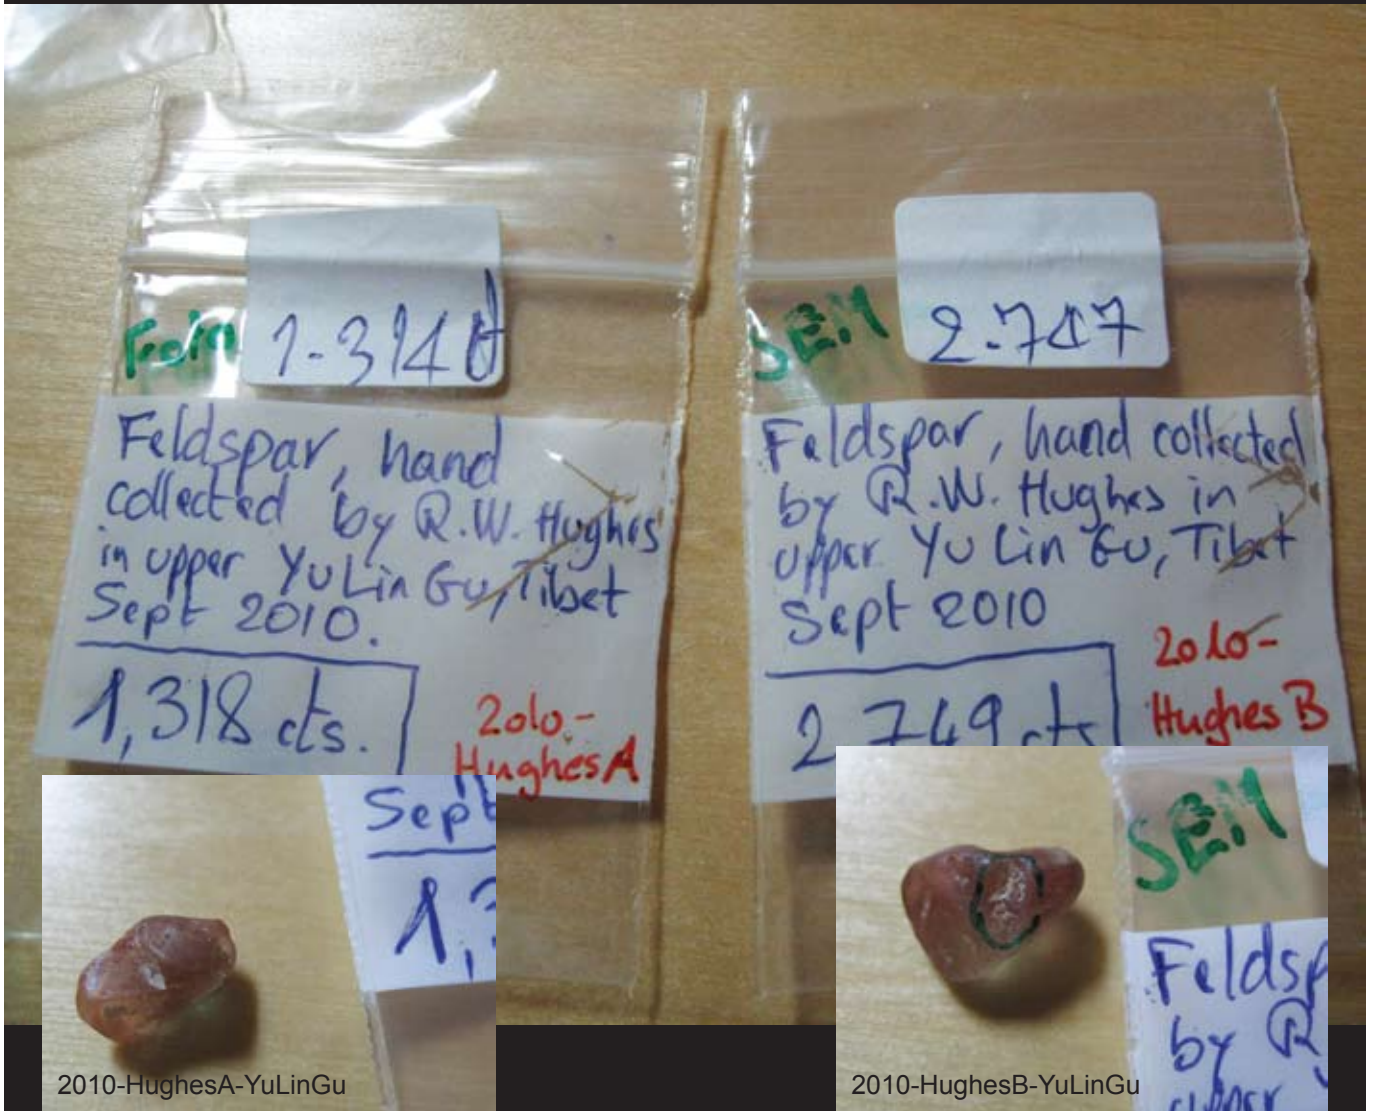 1.314
Feldspar, hand
collected by R.W. Hughes
in upper Yu Lin Gu, Tibet
Sept 2010.
1,318 cts.
2010-
Hughes A
SEM
2.747
Feldspar, hand collected
by R.W. Hughes in
upper Yu Lin Gu, Tibet
Sept 2010
2 749 cts
2010-
Hughes B
Sept
1,3
2010-HughesA-YuLinGu
SEM
Feldsp
by R
upper
2010-HughesB-YuLinGu